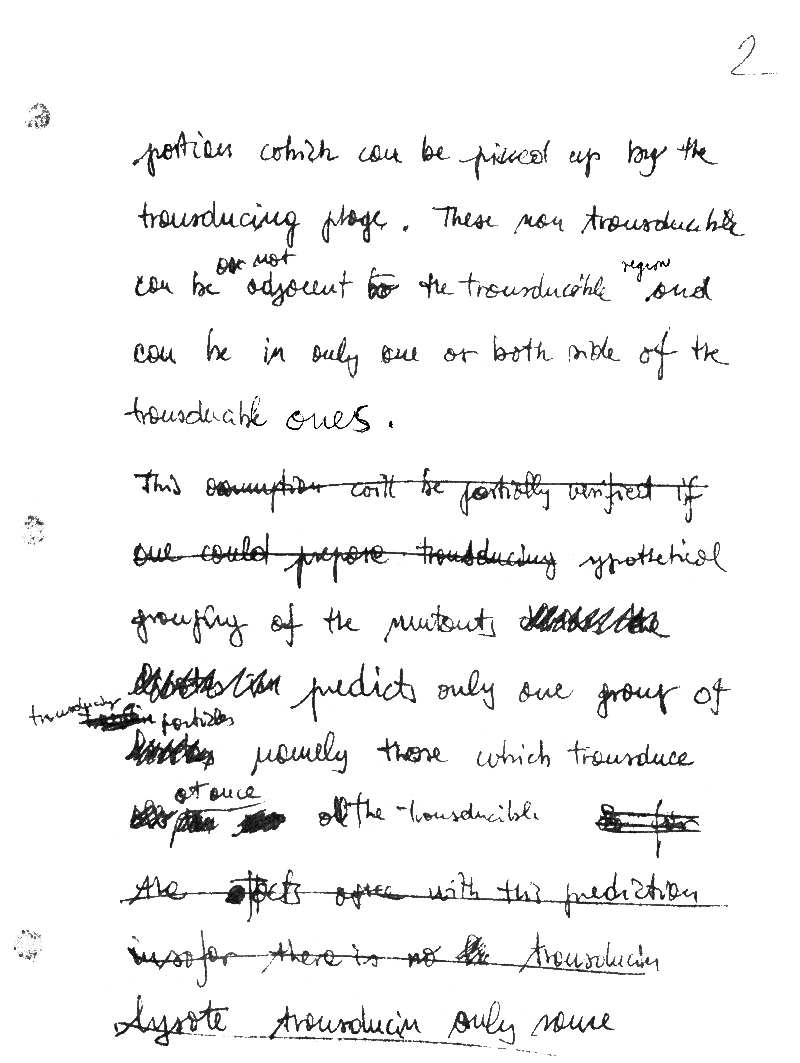 2
portions which can be picked up by the
transducing phage. These non transducible
can be or not adjacent to the transducible region and
can be in only one or both side of the
transducible ones.
This assumption will be partially verified if
one could prepare transducing ypothetical
grouping of the mutants
predicts only one group of
transducing particles
namely those which transduce
at once all the transducible
The facts agree with this prediction
insofar there is no transducin
lysate transducin only some